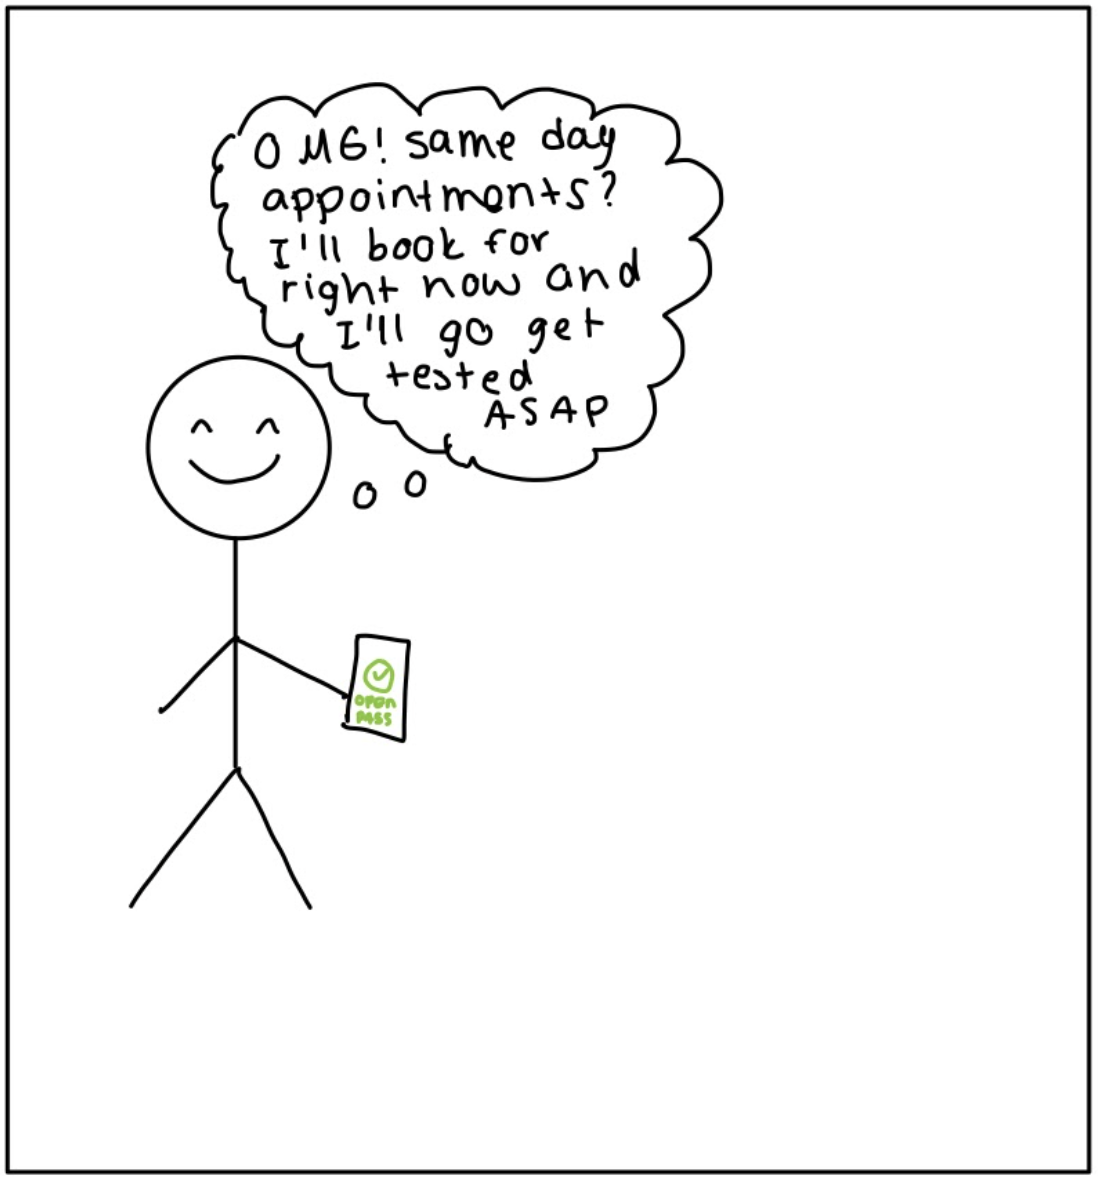 OMG! same day
appointments?
I'll book for
right now and
I'll go get
tested
ASAP
open
PASS